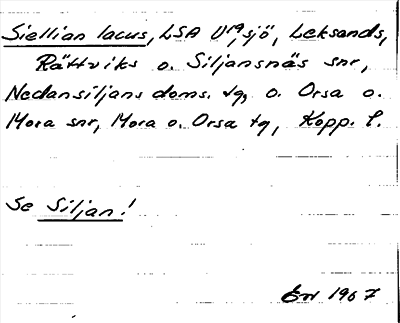 Siellian lacus, LSA U19, sjö, Leksands,
Rättviks o. Siljansnäs snr,
Nedansiljans doms. tg, o. Orsa o.
Mora snr, Mora o. Orsa tg, Kopp. l.
Se Siljan!
1967